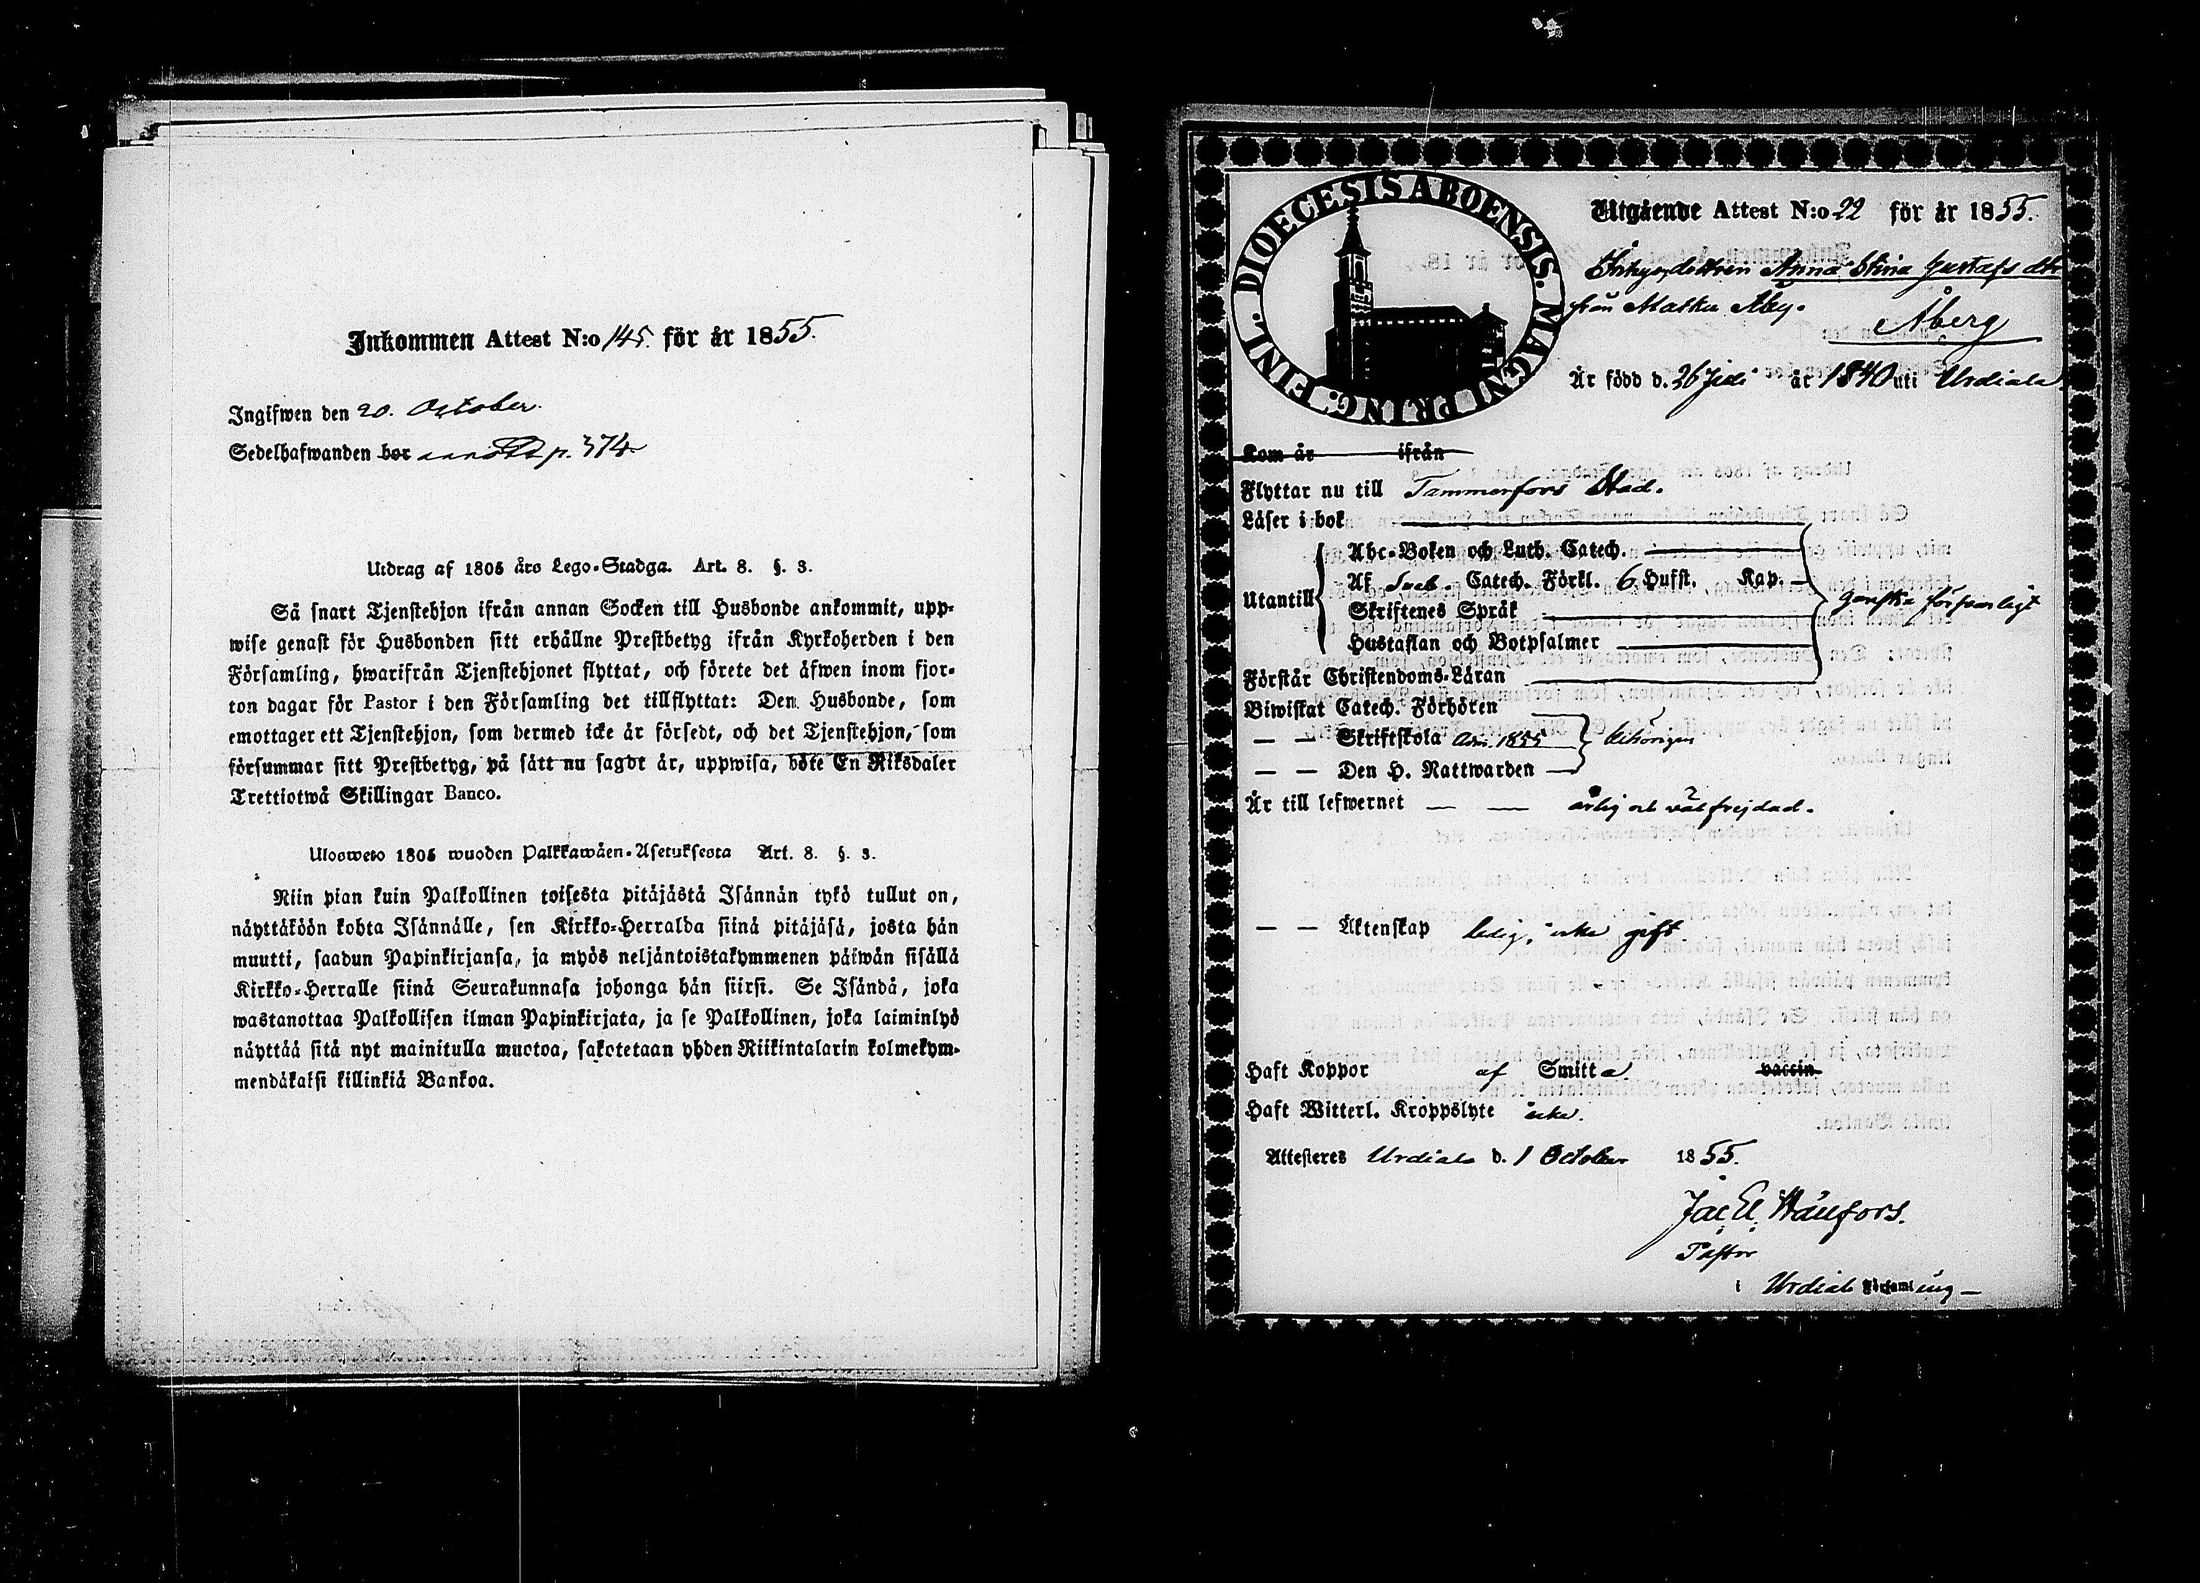 Inkommen Attest N:o 145. för år 1855.
Ingifwen den 20. October.
Sedelhafwanden bor annoted p. 374.
Utdrag af 1805 års Lego-Stadga. Art. 8. §. 3.
Så snart Tjenstehjon ifrån annan Socken till Husbonde ankommit, upp-
wise genast för Husbonden sitt erhållne Prestbetyg ifrån Kyrkoherden i den
Församling, hwarifrån Tjenstehjonet flyttat, och förete det äfwen inom fjor-
ton dagar för Pastor i den Församling det tillflyttat: Den Husbonde, som
emottager ett Tjenstehjon, som dermed icke är försedt, och det Tjenstehjon, som
försummar sitt Prestbetyg, på sätt nu sagdt är, uppwisa, böte En Riksdaler
Trettiotwå Skillingar Banco.
Ulosweto 1805 wuoden Palkkawäen-Asetuksesta Art. 8. §. 3.
Niin pian kuin Palkollinen toisesta pitäjästä Isännän tykö tullut on,
näyttäköön kohta Isännälle, sen Kirkko-Herralda siinä pitäjäsä, josta hän
muutti, saadun Papinkirjansa, ja myös neljäntoistakymmenen päiwän sisällä
Kirkko-Herralle siinä Seurakunnasa johonga hän siirsi. Se Isändä, joka
wastanottaa Palkollisen ilman Papinkirjata, ja se Palkollinen, joka laiminlyö
näyttää sitä nyt mainitulla muotoa, sakotetaan yhden Riikintalarin kolmekym-
mendäkaksi killinkiä Bankoa.
DIOECESIS ABOENSIS. MAGNI PRINC. FINL.
Utgående Attest N:o 22 för år 1855.
Inhysesdottren Anna Stina Gustafsdtr
från Matku Åby. Åberg
Är född d. 26 Juli år 1840 uti Urdiala
Kom år ifrån
Flyttar nu till Tammerfors Stad.
Läser i bok
Abc-Boken och Luth. Catech.
Utantill Af Sveb. Catech. Förkl. 6 Hufst. Kap. ganska försvarligt
Skriftenes Språk
Hustaflan och Botpsalmer
Förstår Christendoms-Läran
Biwistat Catech. Förhören
— — Skriftskola Adm. 1855 behörigen
— — Den H. Nattwarden
Är till lefwernet — — ärlig och välfrejdad.
— — Äktenskap ledig, icke gift
Haft Koppor af Smitta vaccin
Haft Witterl. Kroppslyte icke.
Attesteres Urdiala d. 1 October 1855.
Jac. El. Hällfors.
Pastor
i Urdiala Församling —